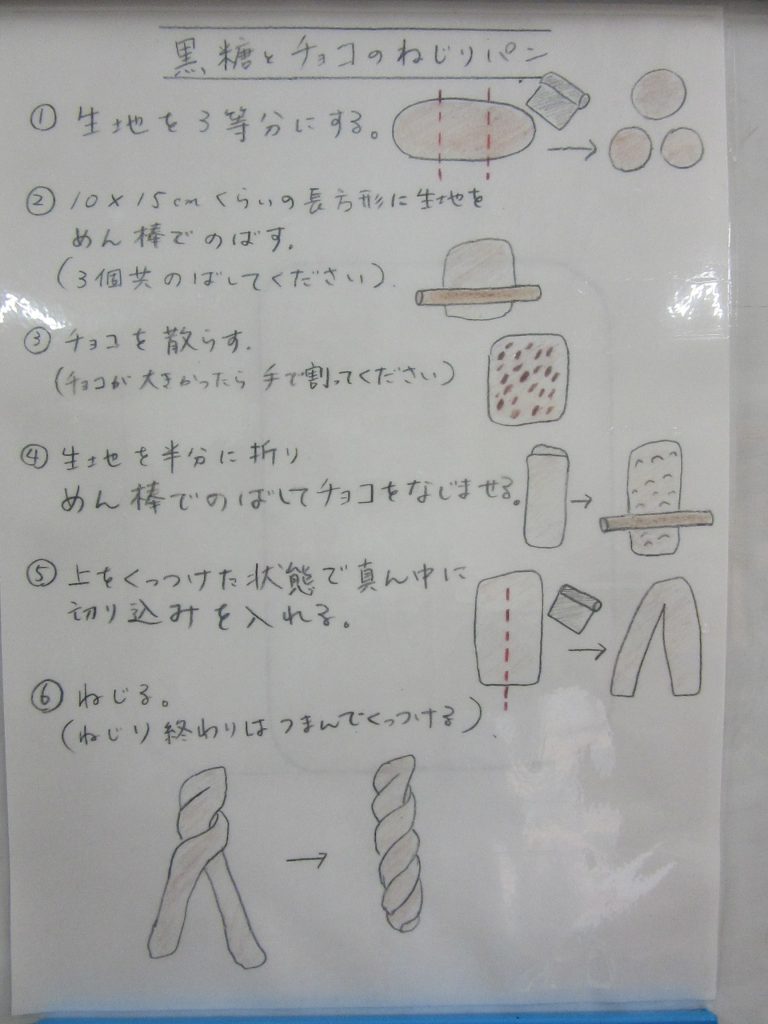 黒糖とチョコのねじりパン
① 生地を3等分にする。
② 10×15cmくらいの長方形に生地を
めん棒でのばす。
(3個共のばしてください)
③ チョコを散らす。
(チョコが大きかったら手で割ってください)
④ 生地を半分に折り
めん棒でのばしてチョコをなじませる。
⑤ 上をくっつけた状態で真ん中に
切り込みを入れる。
⑥ ねじる。
(ねじり終わりはつまんでくっつける)